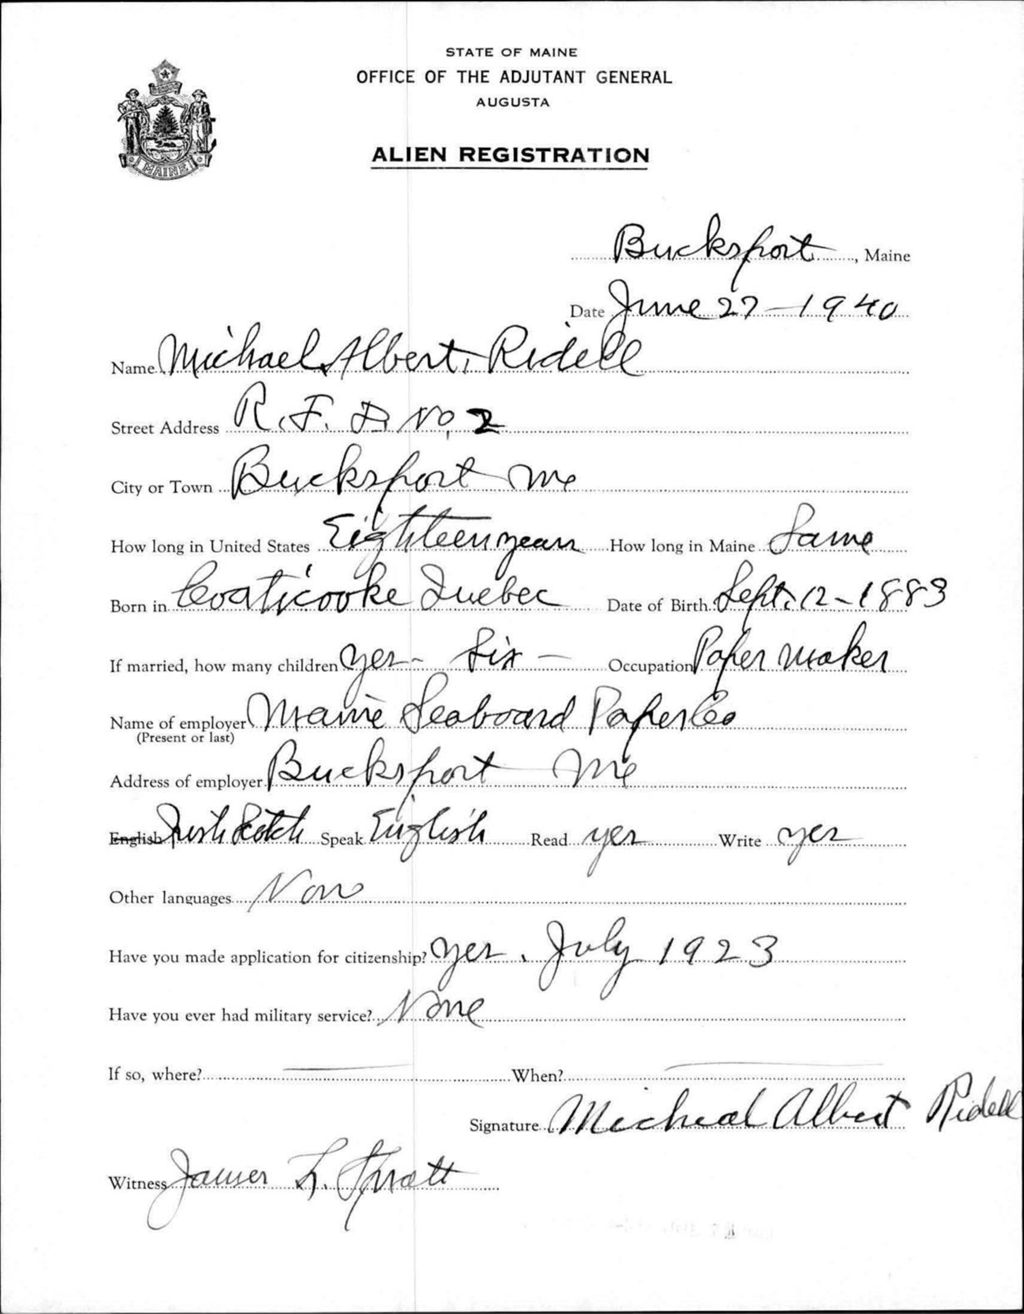 STATE OF MAINE
OFFICE OF THE ADJUTANT GENERAL
AUGUSTA
ALIEN REGISTRATION
MAINE
Bucksport, Maine
Date June 27-1940
Name Michael Albert, Ridell
Street Address R.F.D No, 2
City or Town Bucksport Me
How long in United States Eighteen years How long in Maine Same
Born in Coaticooke Quebec Date of Birth Sept. 12-1883
If married, how many children yes - Six - Occupation Paper Maker
Name of employer Maine Seaboard Paper Co
(Present or last)
Address of employer Bucksport Me
English Irish Scotch Speak English Read yes Write yes
Other languages Non
Have you made application for citizenship? yes. July 1923
Have you ever had military service? None
If so, where? — When? —
Signature Micheal Albert Ridell
Witness James L. Spratt